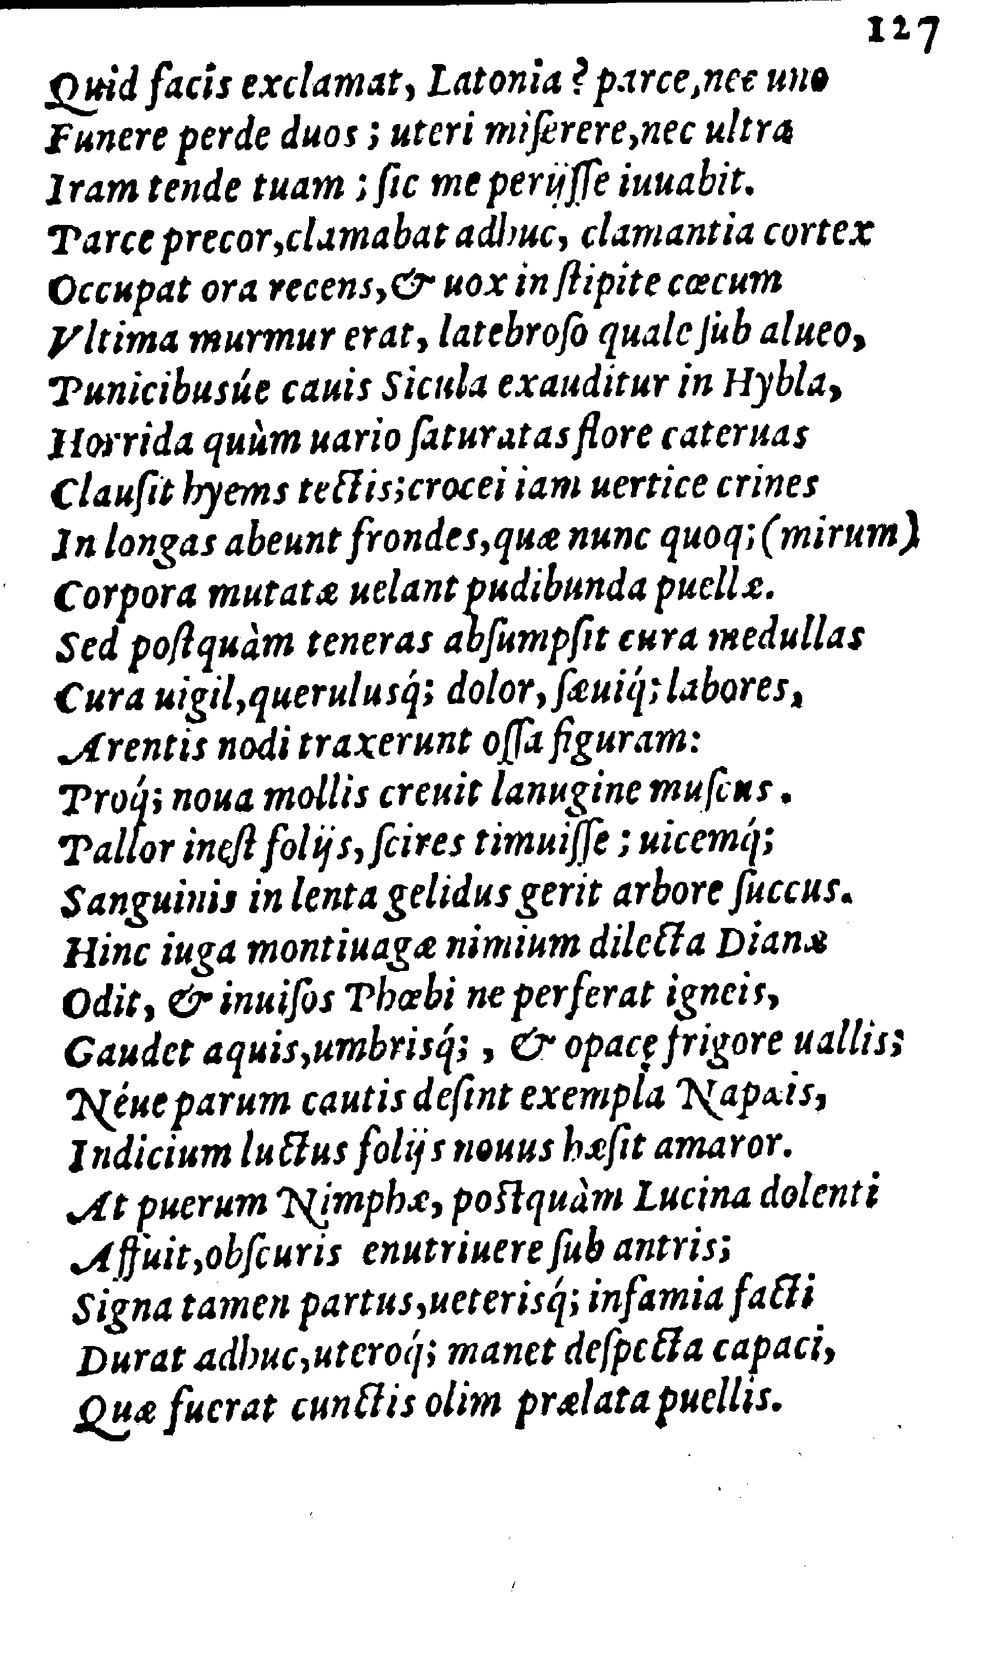 127
Quid facis exclamat, Latonia? parce, nec uno
Funere perde duos; uteri miſerere, nec ultra
Iram tende tuam; ſic me perijſſe iuuabit.
Parce precor, clamabat adhuc, clamantia cortex
Occupat ora recens, & uox in ſtipite cœcum
Vltima murmur erat, latebroſo quale ſub alueo,
Punicibusúe cauis Sicula exauditur in Hybla,
Horrida quùm uario ſaturatas flore cateruas
Clauſit hyems tectis; crocei iam uertice crines
In longas abeunt frondes, quæ nunc quoq; (mirum)
Corpora mutatæ uelant pudibunda puellæ.
Sed poſtquàm teneras abſumpſit cura medullas
Cura uigil, querulusq́; dolor, ſæuiq́; labores,
Arentis nodi traxerunt oſſa figuram:
Proq́; noua mollis creuit lanugine muſcus.
Pallor ineſt folijs, ſcires timuiſſe; uicemq́;
Sanguinis in lenta gelidus gerit arbore ſuccus.
Hinc iuga montiuagæ nimium dilecta Dianæ
Odit, & inuiſos Phœbi ne perferat igneis,
Gaudet aquis, umbrisq́; , & opacę frigore uallis;
Néue parum cautis deſint exempla Napæis,
Indicium luctus folijs nouus hæſit amaror.
At puerum Nimphæ, poſtquàm Lucina dolenti
Affuit, obſcuris enutriuere ſub antris;
Signa tamen partus, ueterisq́; infamia facti
Durat adhuc, uteroq́; manet deſpecta capaci,
Quæ fuerat cunctis olim prælata puellis.